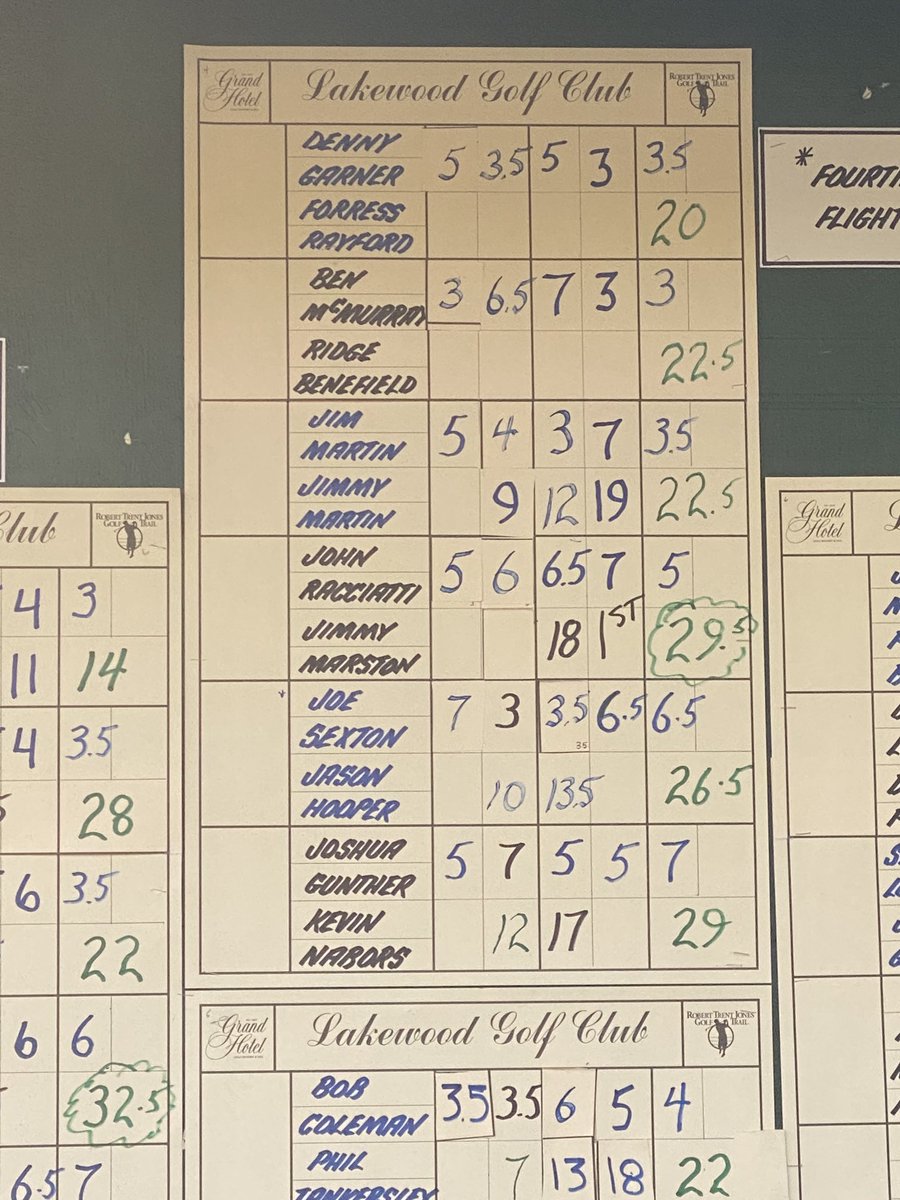 Grand Hotel
Lakewood Golf Club
ROBERT TRENT JONES GOLF TRAIL
DENNY
GARNER
5 3.5 5 3 3.5
FORRESS
RAYFORD
20
BEN
McMURRAY
3 6.5 7 3 3
RIDGE
BENEFIELD
22.5
JIM
MARTIN
5 4 3 7 3.5
JIMMY
MARTIN
9 12 19 22.5
JOHN
RACCIATTI
5 6 6.5 7 5
JIMMY
MARSTON
18 1ST 29.5
JOE
SEXTON
7 3 3.5 6.5 6.5
35
JASON
HOOPER
10 13.5 26.5
JOSHUA
GUNTHER
5 7 5 5 7
KEVIN
NABORS
12 17 29
Grand Hotel
Lakewood Golf Club
ROBERT TRENT JONES GOLF TRAIL
BOB
COLEMAN
3.5 3.5 6 5 4
PHIL
TANKERSLEY
7 13 18 22
Club
ROBERT TRENT JONES GOLF TRAIL
4 3
11 14
4 3.5
28
6 3.5
22
6 6
32.5
6.5 7
*
FLIGHT
Grand Hotel